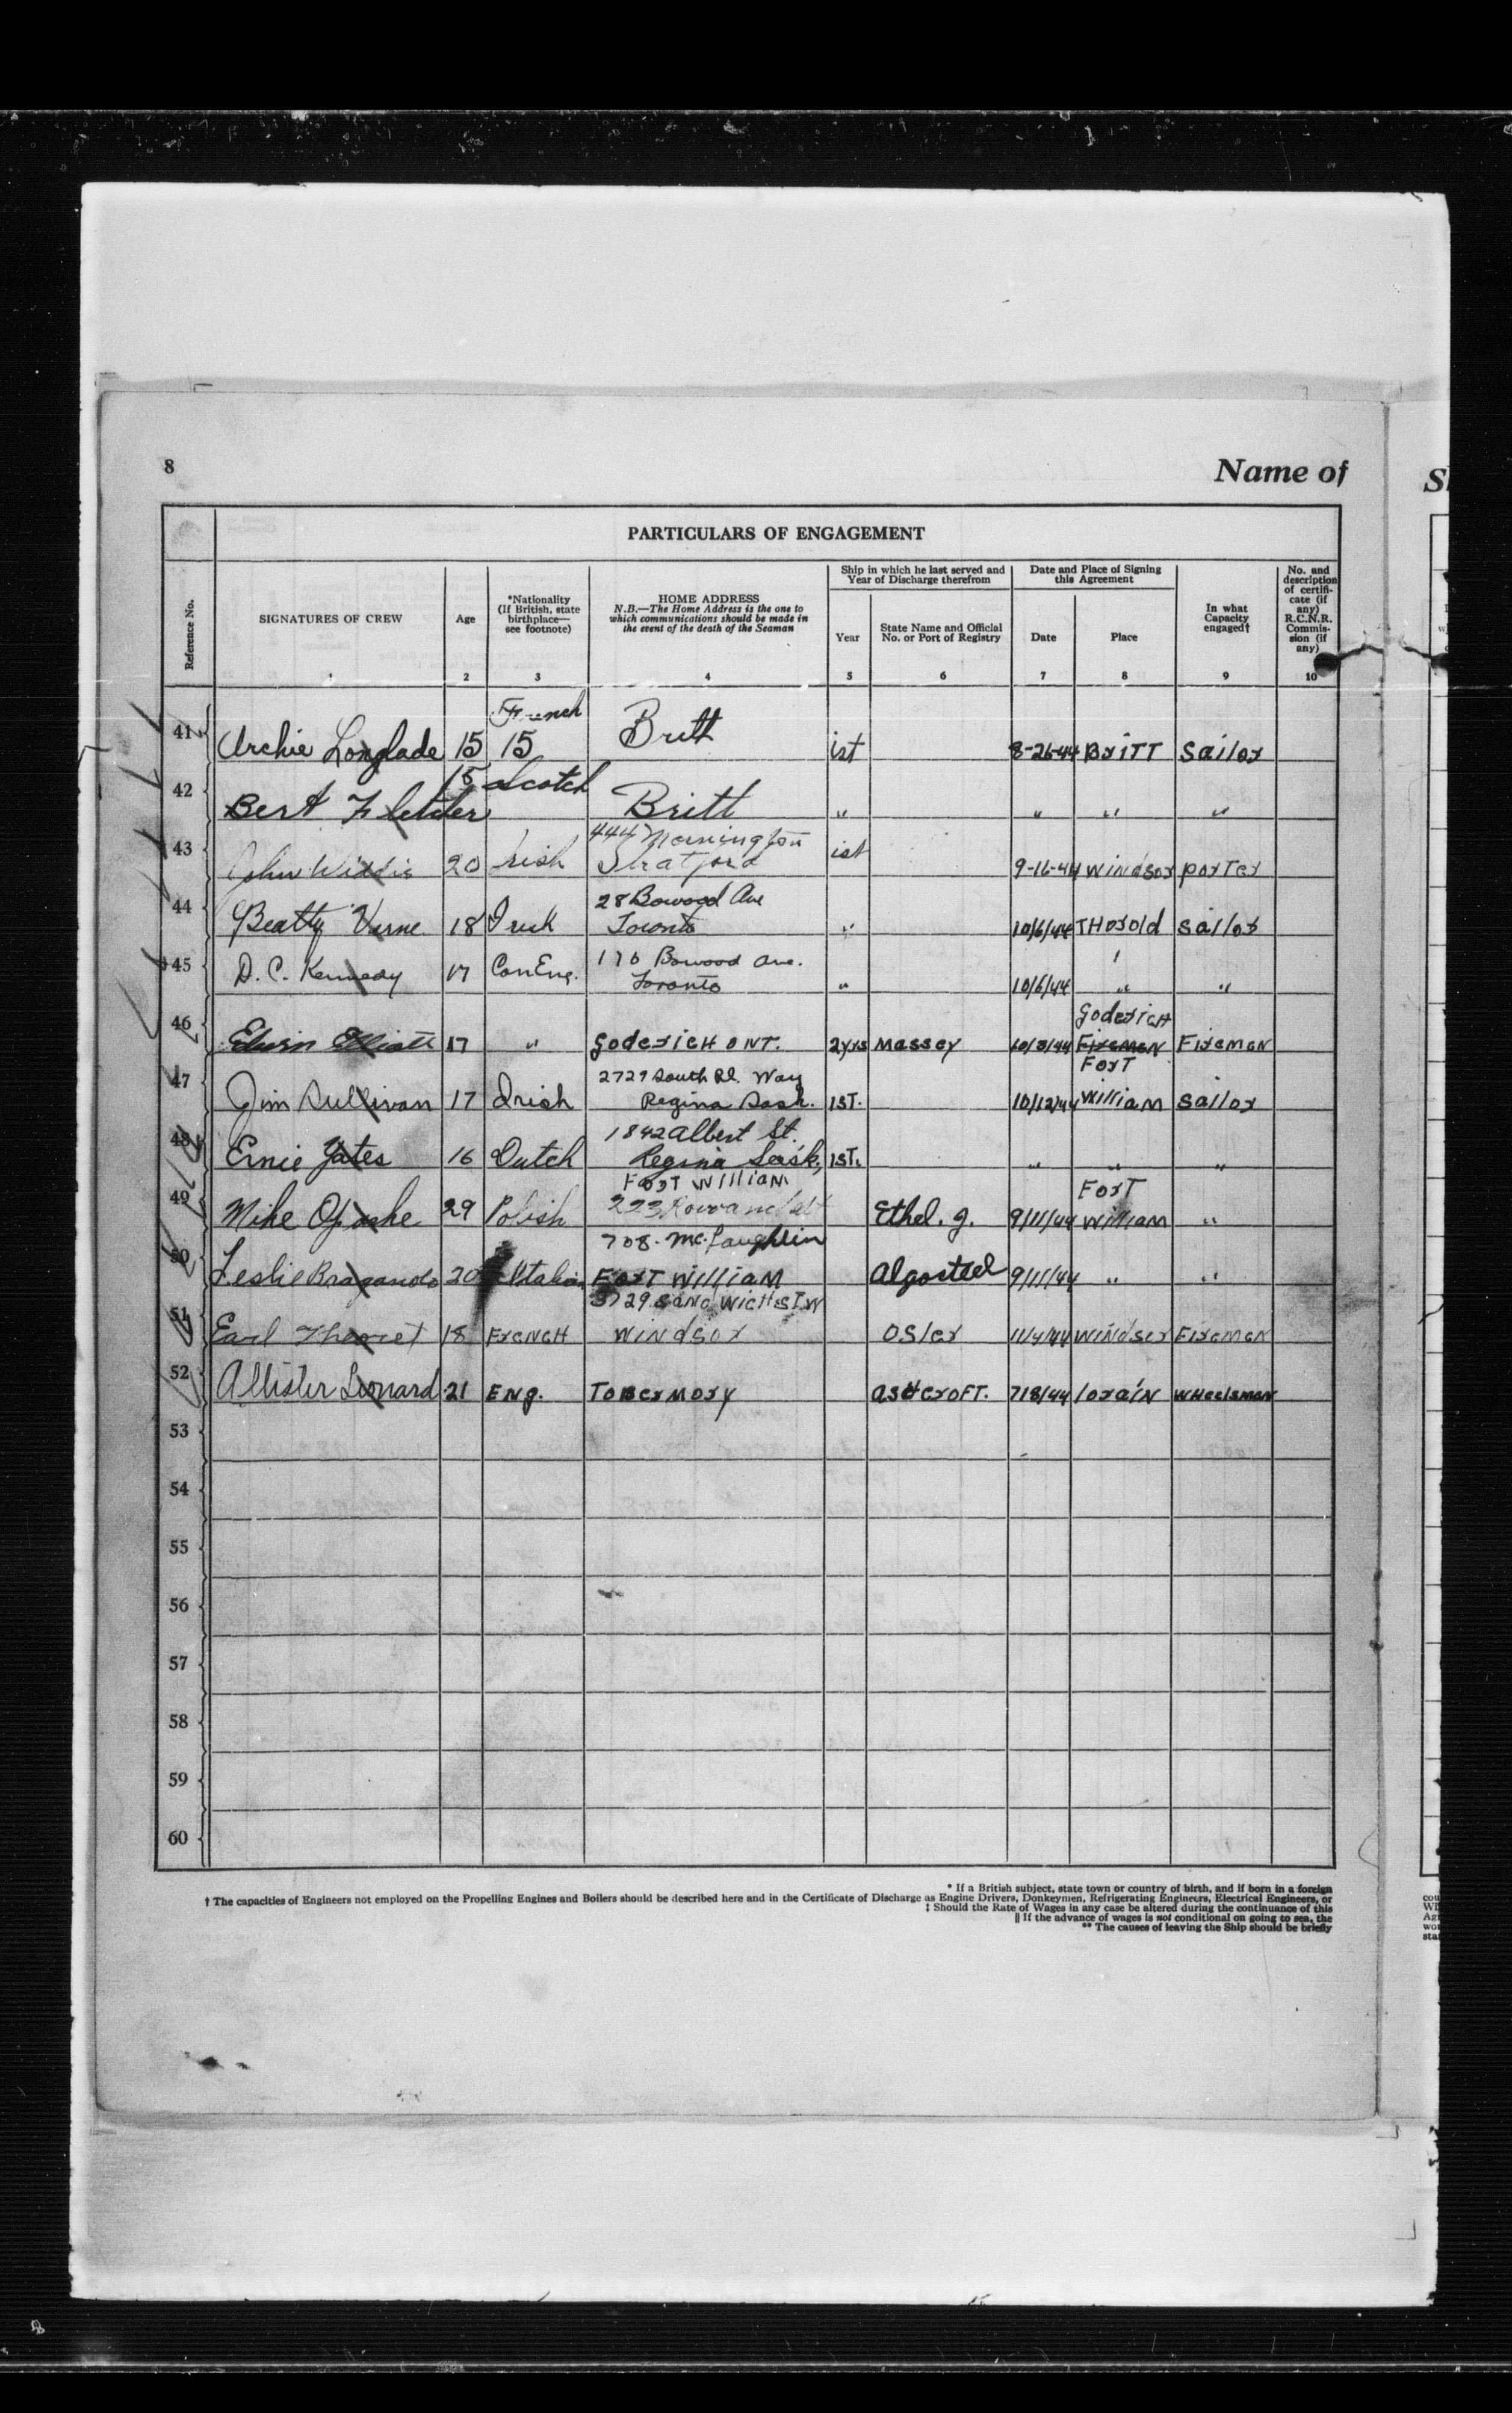 8
Name of
PARTICULARS OF ENGAGEMENT
Reference No.
SIGNATURES OF CREW
1
Age
2
*Nationality
(If British, state
birthplace—
see footnote)
3
HOME ADDRESS
N.B.—The Home Address is the one to
which communications should be made in
the event of the death of the Seaman
4
Ship in which he last served and
Year of Discharge therefrom
Year
5
State Name and Official
No. or Port of Registry
6
Date and Place of Signing
this Agreement
Date
7
Place
8
In what
Capacity
engaged†
9
No. and
description
of certifi-
cate (if
any)
R.C.N.R.
Commis-
sion (if
any)
10
French
41 Archie Longlade 15 15 Britt ist 8-26-44 Britt Sailor
42 Bert Fletcher 15 Scotch Britt " " " "
444 Mornington
43 John Willis 20 Irish Stratford ist 9-16-44 Windsor Porter
28 Bowood Ave
44 Beatty Verne 18 Irish Toronto " 10/6/44 THorold Sailor
170 Bowood Ave.
45 D. C. Kennedy 17 Can Eng. Toronto " 10/6/44 " "
Goderich
46 Edwin Elliott 17 " Goderich ONT. 2yrs Massey 10/8/44 Firemen Firemen
2729 South Rl. Way Fort
47 Jim Sullivan 17 Irish Regina Sask. 1ST. 10/12/44 William Sailor
1842 Albert St.
48 Ernie Yates 16 Dutch Regina Sask, 1ST. " " "
Fort William Fort
49 Mike 29 Polish 223 Ethel. J. 9/11/44 William "
708 - McLaughlin
50 Leslie Bragando 20 Italian Fort William Algosteel 9/11/44 " "
3729 Sandwich ST W
51 Earl 18 French Windsor Osler 11/4/44 Windsor Firemen
52 Allister Leonard 21 Eng. Tobermory Ashcroft. 7/8/44 Lorain Wheelsman
53
54
55
56
57
58
59
60
* If a British subject, state town or country of birth, and if born in a foreign
† The capacities of Engineers not employed on the Propelling Engines and Boilers should be described here and in the Certificate of Discharge as Engine Drivers, Donkeymen, Refrigerating Engineers, Electrical Engineers, or
‡ Should the Rate of Wages in any case be altered during the continuance of this
|| If the advance of wages is not conditional on going to sea, the
** The causes of leaving the Ship should be briefly